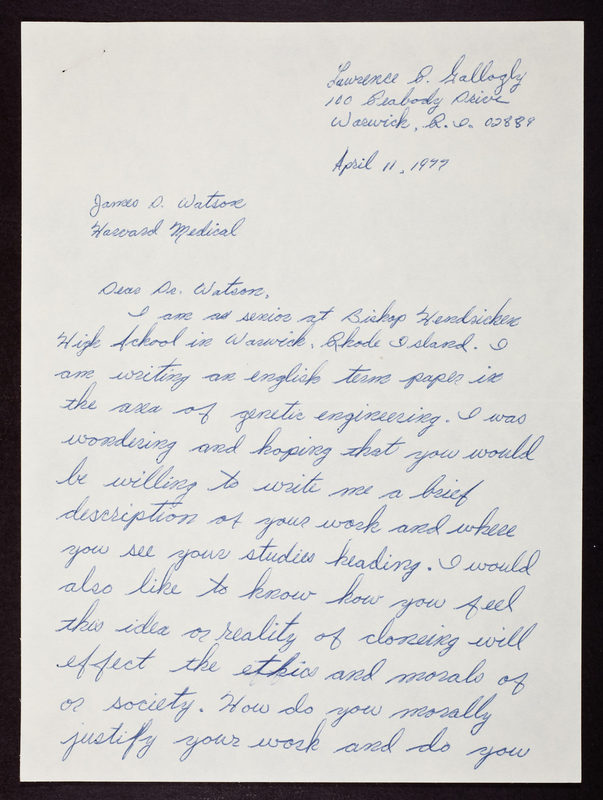 Lawrence P. Gallogly
100 Peabody Drive
Warwick, R.I. 02889
April 11, 1977
James D. Watson
Harvard Medical
Dear Dr. Watson,
I am a senior at Bishop Hendricken
High School in Warwick, Rhode Island. I
am writing an english term paper in
the area of genetic engineering. I was
wondering and hoping that you would
be willing to write me a brief
description of your work and where
you see your studies heading. I would
also like to know how you feel
this idea or reality of cloneing will
effect the ethics and morals of
or society. How do you morally
justify your work and do you